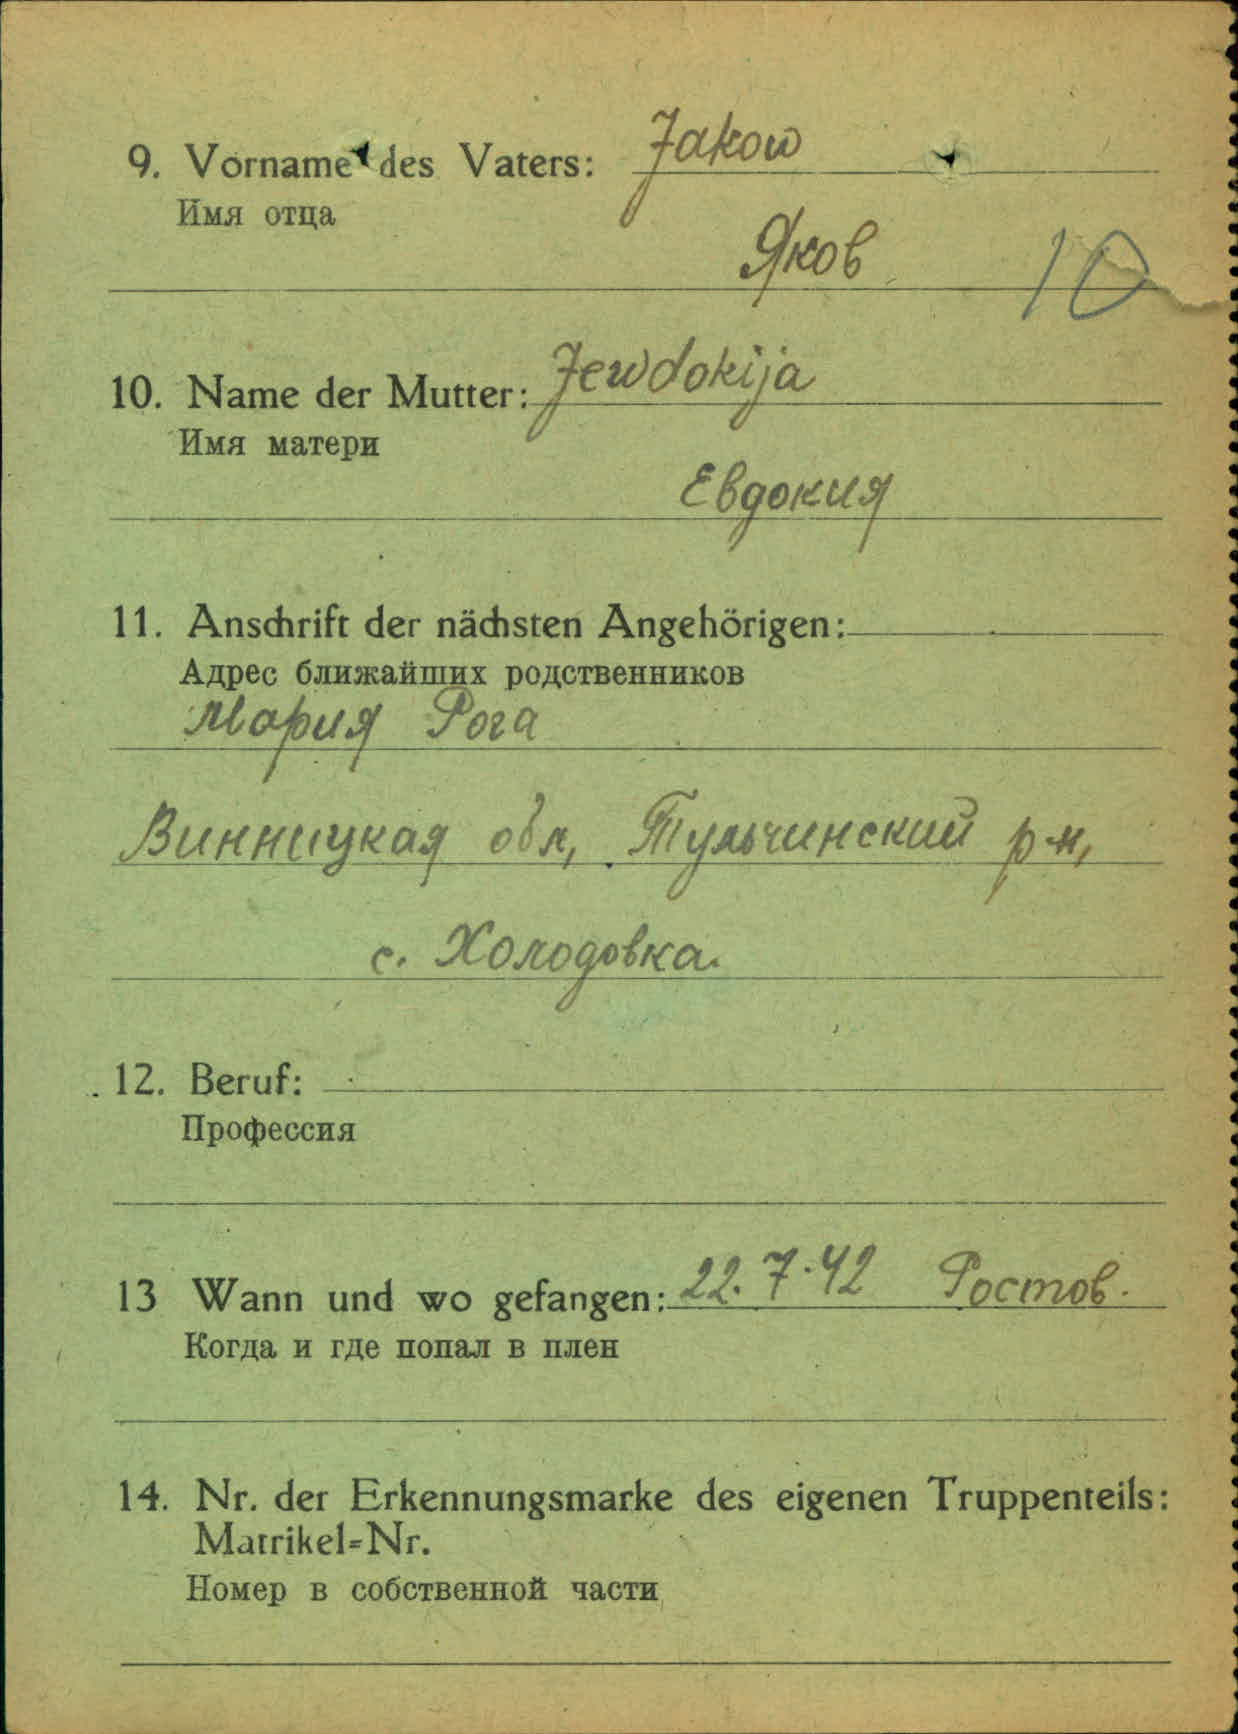 9. Vorname des Vaters: Jakow
Имя отца
Яков
10
10. Name der Mutter: Jewdokija
Имя матери
Евдокия
11. Anschrift der nächsten Angehörigen:
Адрес ближайших родственников
Мария Рога
Винницкая обл, Тульчинский р-н,
с. Холодовка.
12. Beruf:
Профессия
13 Wann und wo gefangen: 22.7.42 Ростов.
Когда и где попал в плен
14. Nr. der Erkennungsmarke des eigenen Truppenteils:
Matrikel=Nr.
Номер в собственной части